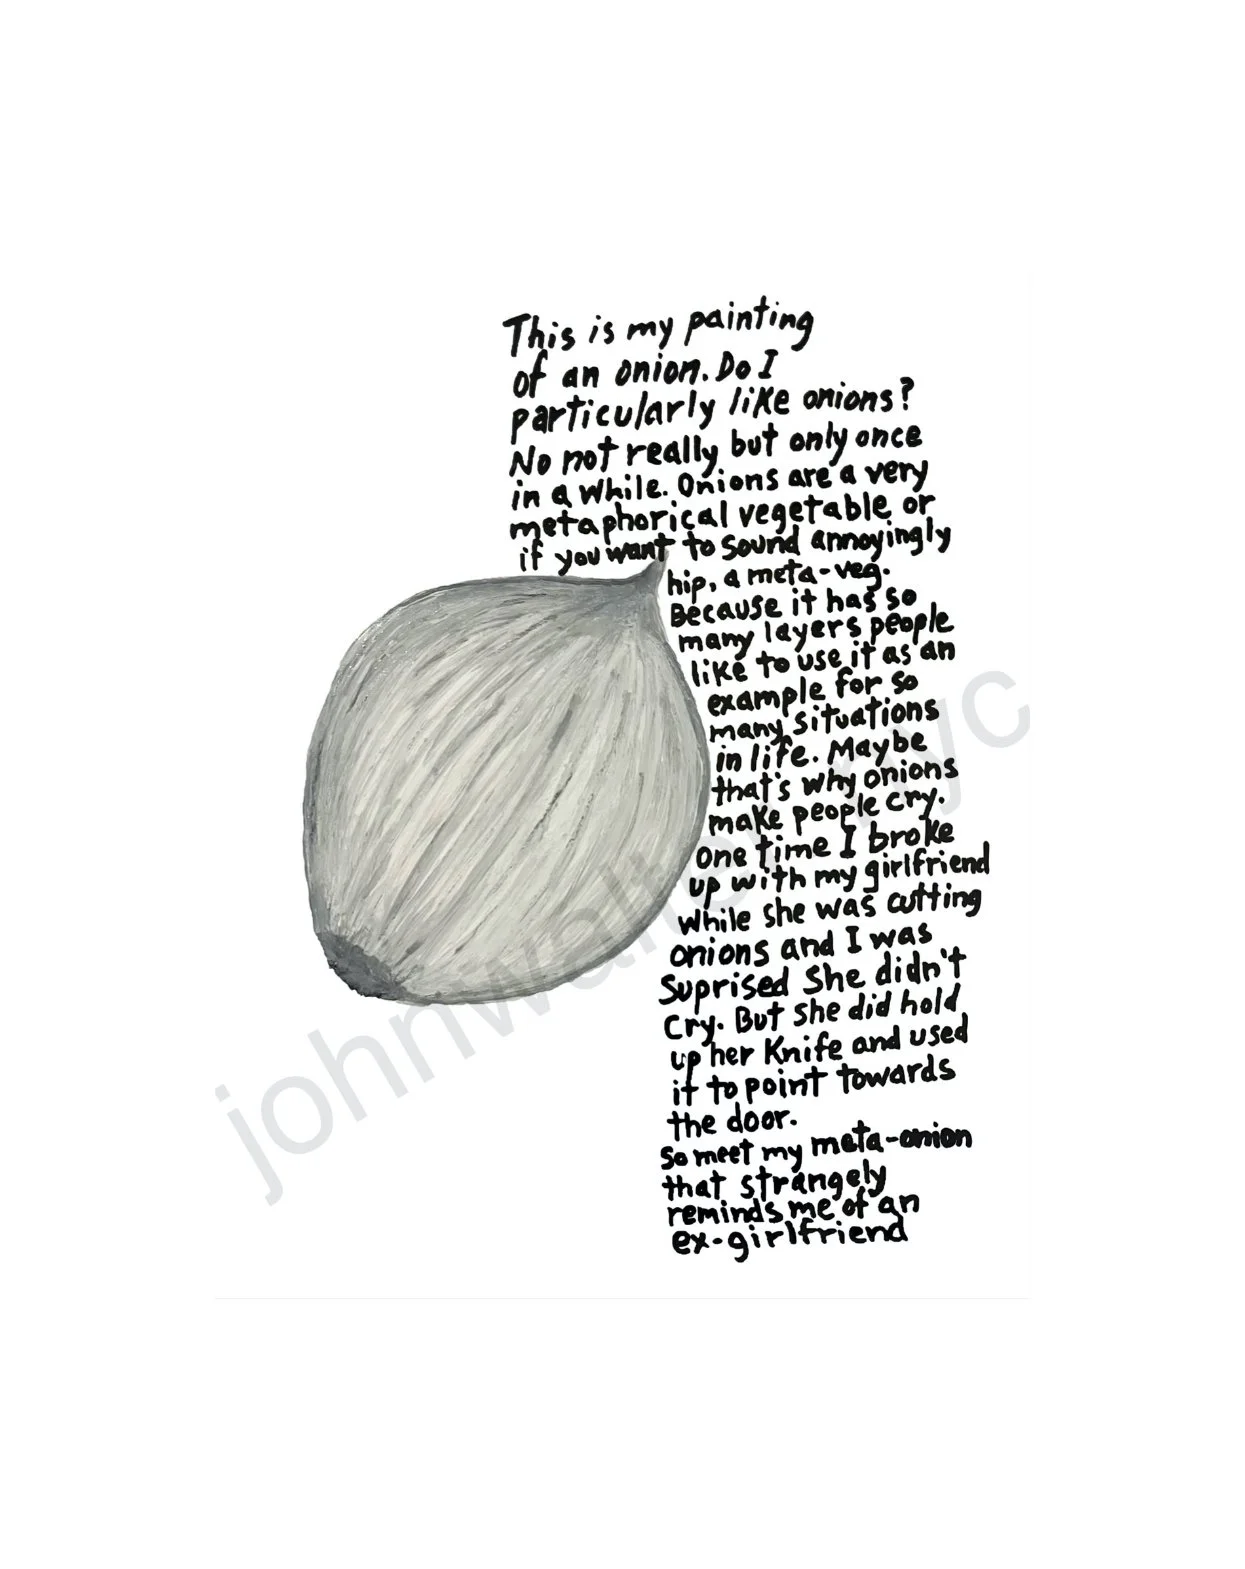 This is my painting
of an onion. Do I
particularly like onions?
No not really but only once
in a while. Onions are a very
metaphorical vegetable or
if you want to sound annoyingly
hip, a meta-veg.
Because it has so
many layers people
like to use it as an
example for so
many situations
in life. Maybe
that's why onions
make people cry.
One time I broke
up with my girlfriend
while she was cutting
onions and I was
Suprised She didn't
Cry. But she did hold
up her Knife and used
it to point towards
the door.
So meet my meta-onion
that strangely
reminds me of an
ex-girlfriend
johnwalter nyc